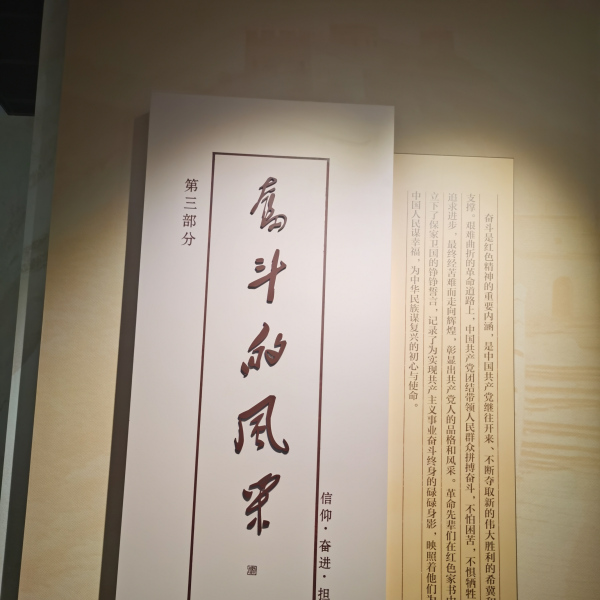 第三部分
奋斗的风采
信仰·奋进·担
奋斗是红色精神的重要内涵，是中国共产党继往开来、不断夺取新的伟大胜利的希冀和
支撑。艰难曲折的革命道路上，中国共产党团结带领人民群众拼搏奋斗，不怕困苦，不惧牺牲
追求进步，最终经苦难而走向辉煌，彰显出共产党人的品格和风采。革命先辈们在红色家书中
立下了保家卫国的铮铮誓言，记录了为实现共产主义事业奋斗终身的碌碌身影，映照着他们为
中国人民谋幸福，为中华民族谋复兴的初心与使命。